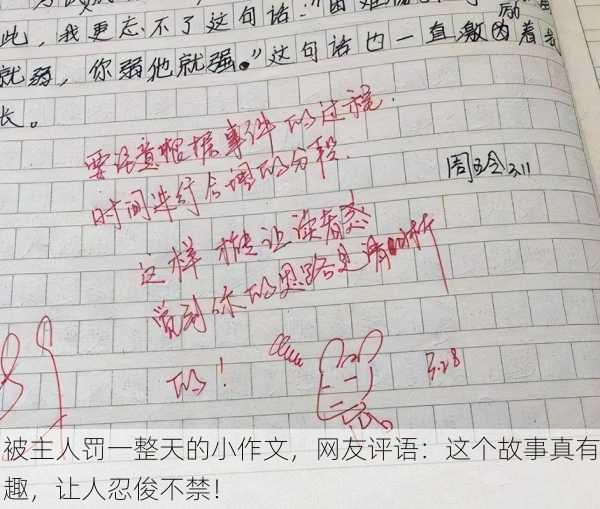 此，我更忘不了这句话："困难
励
就弱，你弱他就强。"这句话也一直激励着我
长。
要注意根据事件的过程.
时间进行合理的分段.
周五会3.11
这样 棒让读者感
觉到你的思路更清晰
的！
5.28
被主人罚一整天的小作文，网友评语：这个故事真有
趣，让人忍俊不禁！